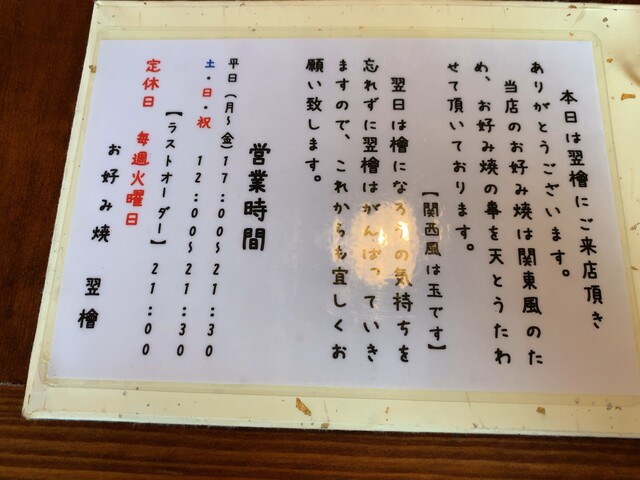 本日は翌檜にご来店頂き
ありがとうございます。
当店のお好み焼は関東風のた
め、お好み焼の事を天とうたわ
せて頂いております。
【関西風は玉です】
翌日は檜になろうの気持ちを
忘れずに翌檜はがんばっていき
ますので、これからも宜しくお
願い致します。
営業時間
平日（月～金）17:00～21:30
土・日・祝 12:00～21:30
【ラストオーダー】21:00
定休日 毎週火曜日
お好み焼 翌檜